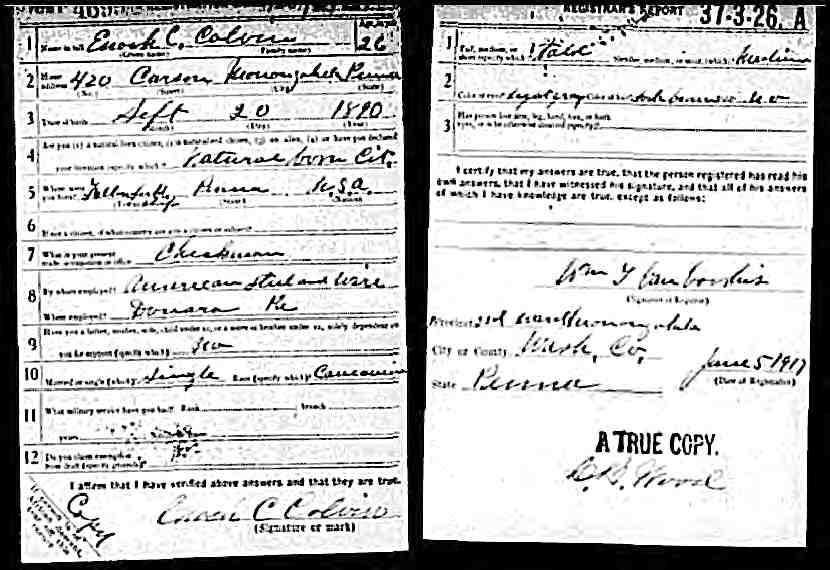 1 Name in full Enoch C. Colvin 26
(Given name) (Family name)
2 Home address 420 Carson Monongahela Penna
(No.) (Street) (City) (State)
3 Date of birth Sept 20 1890
(Month) (Day) (Year)
4 Are you (1) a natural born citizen, (2) a naturalized citizen, (3) an alien, (4) or have you declared
your intention (specify which)? Natural born Cit.
5 Where were you born? Penna U.S.A.
(Town) (State) (Nation)
6 If not a citizen, of what country are you a citizen or subject?
7 What is your present trade, occupation or office? Checkman
8 By whom employed? American Steel and Wire
Where employed? Donora Pa
9 Have you a father, mother, wife, child under 12, or a sister or brother under 12, solely dependent on
you for support (specify which)?
10 Married or single (which)? Single Race (specify which)? Caucasian
11 What military service have you had? Rank branch
years
12 Do you claim exemption from draft (specify grounds)?
I affirm that I have verified above answers and that they are true.
Copy
Enoch C Colvin
(Signature or mark)
REGISTRAR'S REPORT 37-3-26. A
1 Tall, medium, or short (specify which)? Slender, medium, or stout (which)? Medium
2 Color of eyes Color of hair
3 Has person lost arm, leg, hand, foot, or both
eyes, or is he otherwise disabled (specify)?
I certify that my answers are true, that the person registered has read his
own answers, that I have witnessed his signature, and that all of his answers
of which I have knowledge are true, except as follows:
Wm
(Signature of Registrar)
Precinct 3rd Ward Monongahela
City or County Wash. Co.
State Penna
June 5 1917
(Date of Registration)
A TRUE COPY.
Wood